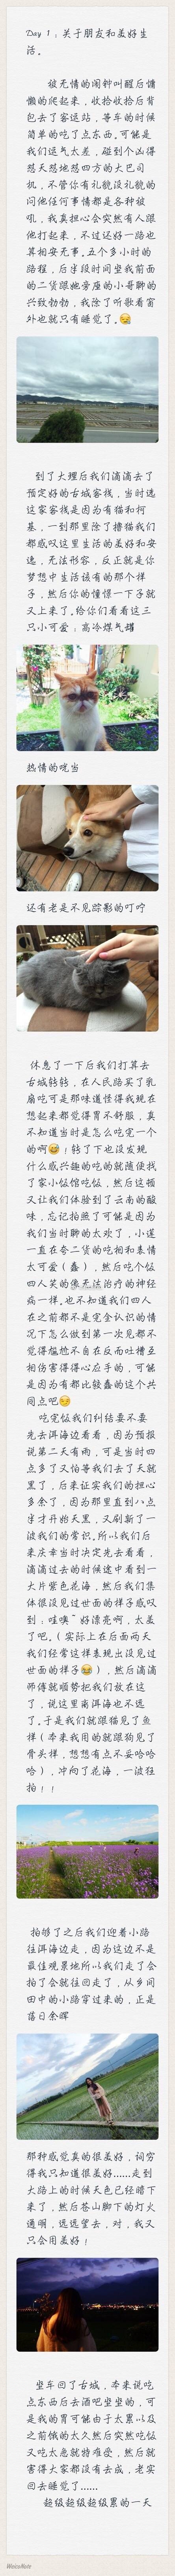 Day 1：关于朋友和美好生
活。
被无情的闹钟叫醒后慵
懒的爬起来，收拾收拾后背
包去了客运站，等车的时候
简单的吃了点东西。可能是
我们运气太差，碰到个凶得
怼天怼地怼四方的大巴司
机，不管你有礼貌没礼貌的
问他任何事情都是各种被
吼，我真担心会突然有人跟
他打起来，不过还好一路也
算相安无事。五个多小时的
路程，后半段时间坐我前面
的二货跟她旁座的小哥聊的
兴致勃勃，我除了听歌看窗
外也就只有睡觉了。😪
到了大理后我们滴滴去了
预定好的古城客栈，当时选
这家客栈是因为有猫和柯
基，一到那里除了撸猫我们
都感叹这里生活的美好和安
逸，无法形容，反正就是你
梦想中生活该有的那个样
子，然后你的憧憬一下子就
又上来了。给你们看看这三
只小可爱：高冷煤气罐
热情的咣当
还有老是不见踪影的叮咛
休息了一下后我们打算去
古城转转，在人民路买了乳
扇吃可是那味道怪得我现在
想起来都觉得胃不舒服，真
不知道当时是怎么吃完一个
的啊😅！转了下也没发现
什么感兴趣的吃的就随便找
了家小饭馆吃饭，然后这顿
又让我们体验到了云南的酸
味，忘记拍照了可能是因为
我们当时聊的太欢了，小莲
一直在夸二货的吃相和表情
太可爱（蠢），然后吃个饭
四人笑的像无法治疗的神经
病一样。也不知道我们四人
在之前都不是完全认识的情
况下怎么做到第一次见都不
觉得尴尬不自在反而吐槽互
相伤害得得心应手的，可能
是因为有都比较蠢的这个共
同点吧😏
吃完饭我们纠结要不要
先去洱海边看看，因为预报
说第二天有雨，可是当时四
点多了又怕等我们去了天就
黑了，后来证实我们的担心
多余了，因为那里直到八点
半才开始天黑，又刷新了一
波我们的常识。所以我们后
来庆幸当时决定先去看看，
滴滴过去的时候途中看到一
大片紫色花海，然后我们集
体很没见过世面的样子感叹
到：哇噢～好漂亮啊，太美
了吧。（实际上在后面两天
我们经常这样表现出没见过
世面的样子😂），然后滴滴
师傅就顺势把我们放在这
了，说这里离洱海也不远
了。于是我们就跟猫见了鱼
样（本来我用的就跟狗见了
骨头样，想想有点不妥哈哈
哈），冲向了花海，一波狂
拍！！
拍够了之后我们迎着小路
往洱海边走，因为这边不是
最佳观景地所以我们走了会
拍了会就往回走了，从乡间
田中的小路穿过来的，正是
落日余晖
那种感觉真的很美好，词穷
得我只知道很美好……走到
大路上的时候天色已经暗下
来了，然后苍山脚下的灯火
通明，远远望去，对，我又
只会用美好！
坐车回了古城，本来说吃
点东西后去酒吧坐坐的，可
是我的胃可能由于太累以及
之前饿的太久然后突然吃饭
又吃太急就特难受，然后就
害得大家都没有去成，老实
回去睡觉了……
超级超级超级累的一天